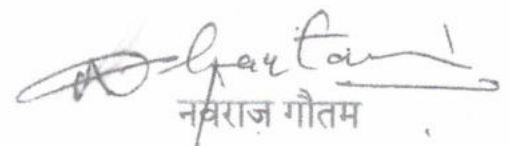 नवराज गौतम